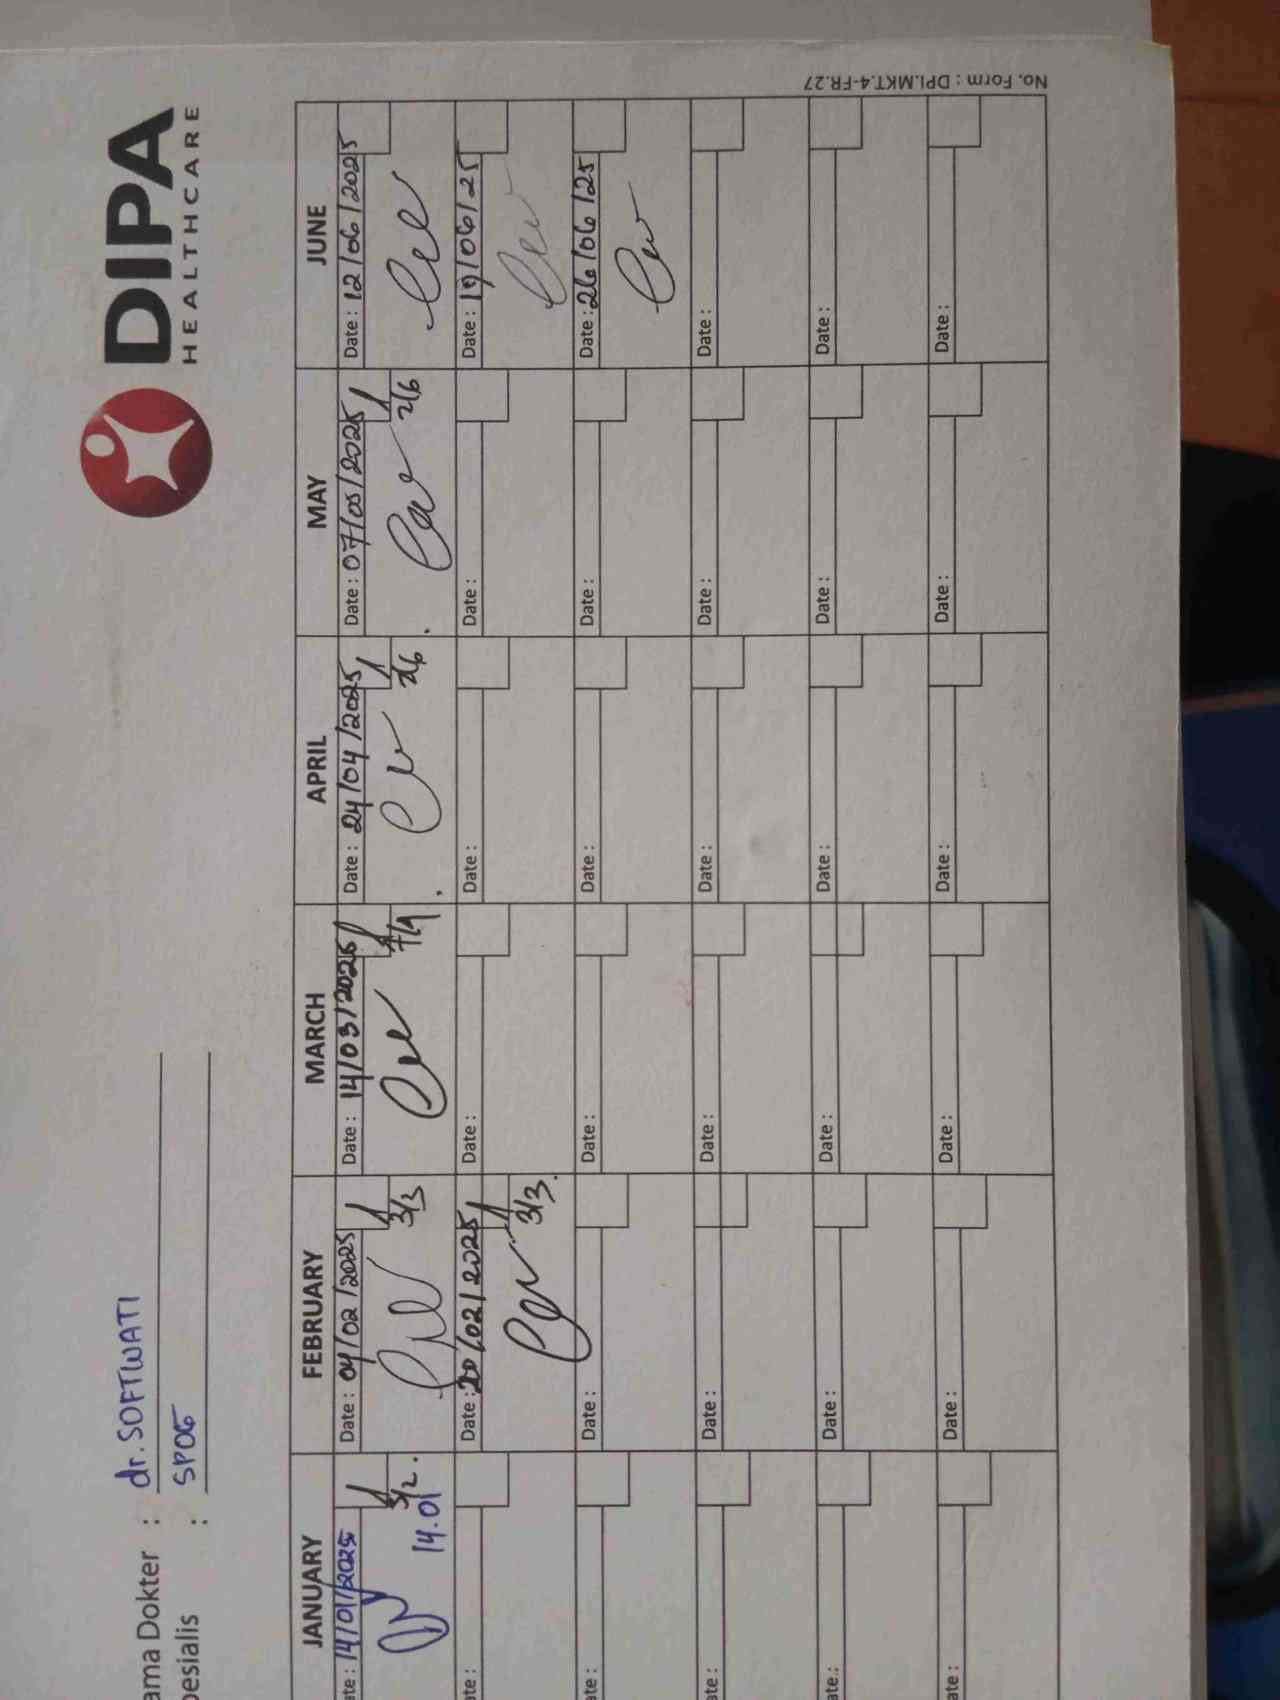 DIPA
HEALTHCARE
ama Dokter : dr. SOFTWATI
pesialis : SPOG
JANUARY FEBRUARY MARCH APRIL MAY JUNE
ate : 14/01/2025 Date : 04/02/2025 Date : 14/03/2025 Date : 24/04/2025 Date : 07/05/2025 Date : 12/06/2025
3/2. 3/3 7/4 2/6 2/6
14.01
ate : Date : 20/02/2025 Date : Date : Date : Date : 19/06/25
3/3.
ate : Date : Date : Date : Date : Date : 26/06/25
ate : Date : Date : Date : Date : Date :
ate.: Date : Date : Date : Date : Date :
ate : Date : Date : Date : Date : Date :
No. Form : DPI.MKT.4-FR.27